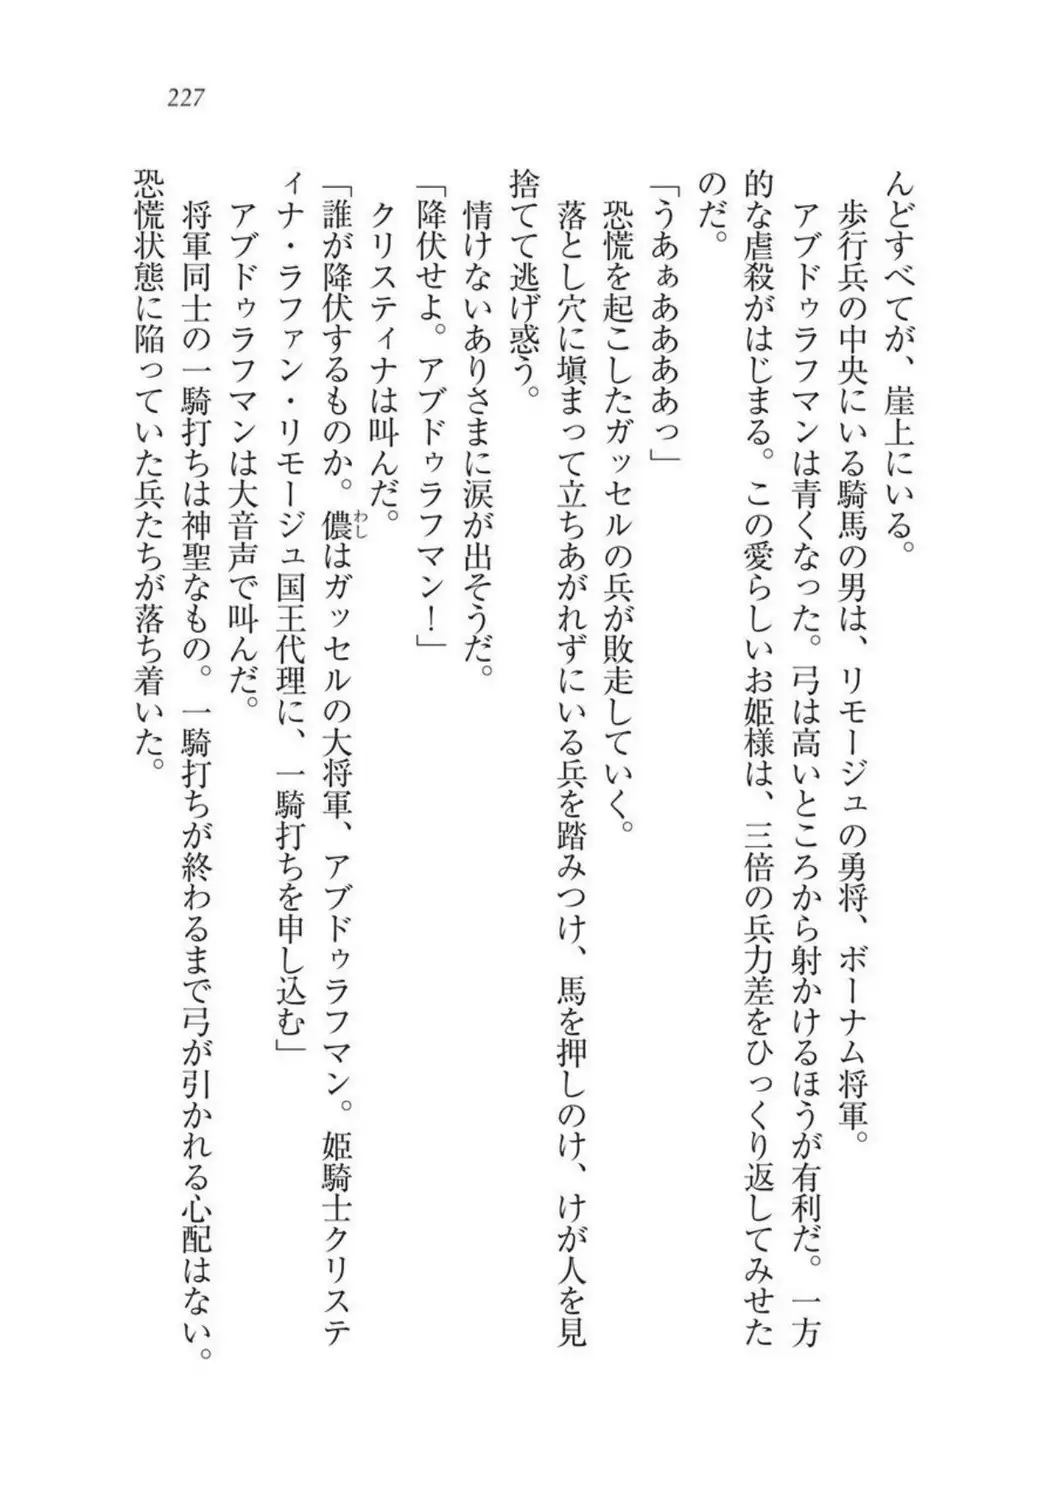 227
んどすべてが、崖上にいる。
歩行兵の中央にいる騎馬の男は、リモージュの勇将、ボーナム将軍。
アブドゥラフマンは青くなった。弓は高いところから射かけるほうが有利だ。一方
的な虐殺がはじまる。この愛らしいお姫様は、三倍の兵力差をひっくり返してみせた
のだ。
「うあぁああああっ」
恐慌を起こしたガッセルの兵が敗走していく。
落とし穴に塡まって立ちあがれずにいる兵を踏みつけ、馬を押しのけ、けが人を見
捨てて逃げ惑う。
情けないありさまに涙が出そうだ。
「降伏せよ。アブドゥラフマン！」
クリスティナは叫んだ。
「誰が降伏するものか。儂わしはガッセルの大将軍、アブドゥラフマン。姫騎士クリステ
ィナ・ラファン・リモージュ国王代理に、一騎打ちを申し込む」
アブドゥラフマンは大音声で叫んだ。
将軍同士の一騎打ちは神聖なもの。一騎打ちが終わるまで弓が引かれる心配はない。
恐慌状態に陥っていた兵たちが落ち着いた。